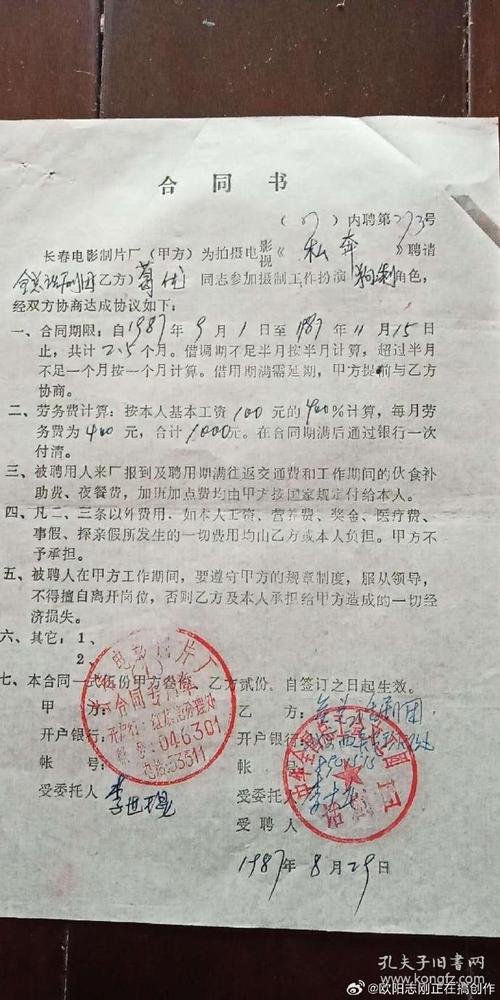 合同书
(87)内聘第273号
长春电影制片厂(甲方)为拍摄电影视《私奔》聘请
全总话剧团(乙方)葛优同志参加摄制工作扮演 角色,
经双方协商达成协议如下:
一、合同期限:自1987年9月1日至1987年11月15日
止,共计2.5个月。借调期不足半月按半月计算,超过半月
不足一个月按一个月计算。借用期满需延期,甲方提前与乙方
协商。
二、劳务费计算:按本人基本工资100元的400%计算,每月劳
务费为400元,合计1000元。在合同期满后通过银行一次
付清。
三、被聘用人来厂报到及聘用期满往返交通费和工作期间的伙食补
助费、夜餐费,加班加点费均由甲方按国家规定付给本人。
四、凡二、三条以外费用,如本人工资、营养费、奖金、医疗费、
事假、探亲假所发生的一切费用均由乙方或本人负担。甲方不
予承担。
五、被聘人在甲方工作期间,要遵守甲方的规章制度,服从领导,
不得擅自离开岗位,否则乙方及本人承担给甲方造成的一切经
济损失。
六、其它:1、
2、
七、本合同一式 份甲方 份,乙方贰份,自签订之日起生效。
甲方: 乙方:全总话剧团
开户银行: 开户银行:
帐号: 帐号:
受委托人 李世 受委托人 李
受聘人
电影制片厂
合同专用章
046301
电话:53311
话剧团
1987年8月29日
孔夫子旧书网
kongfz.com
@欧阳志刚正在搞创作